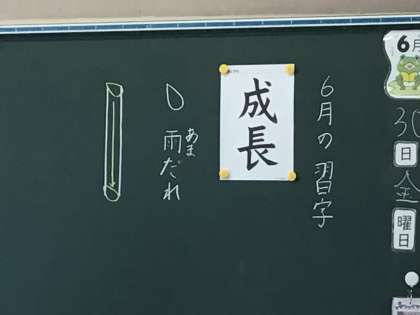 6月
30
日
金
曜日
6月の習字
成長
雨だれ
あま